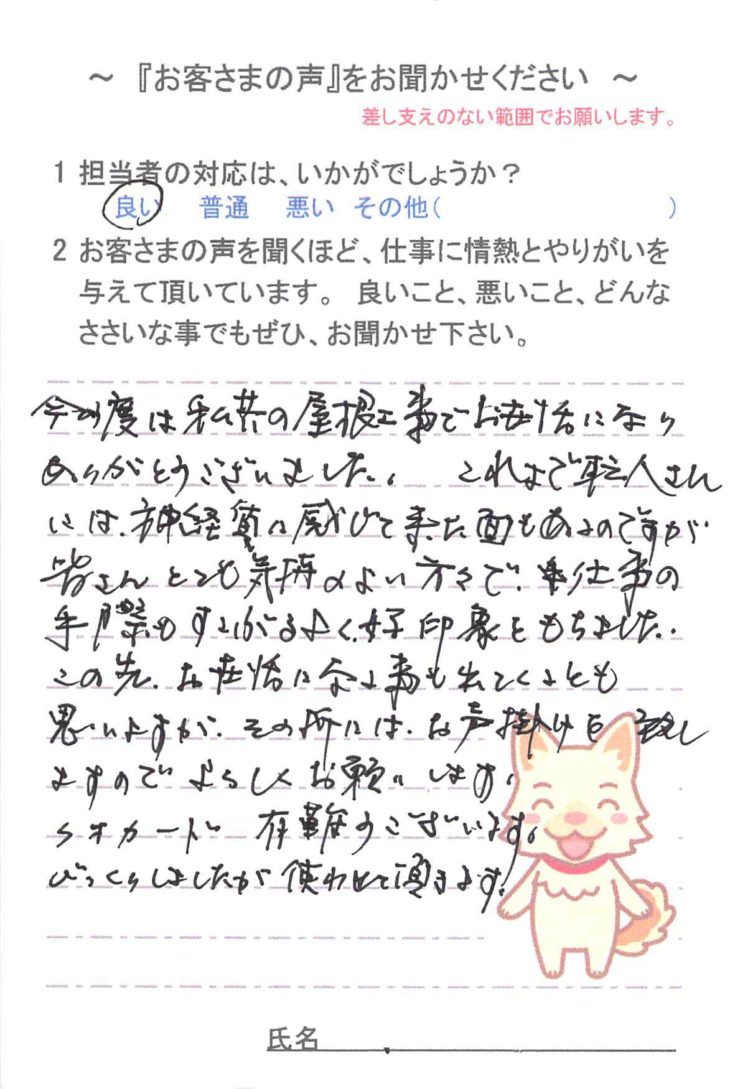 ～ 『お客さまの声』をお聞かせください ～
差し支えのない範囲でお願いします。
1 担当者の対応は、いかがでしょうか？
良い 普通 悪い その他( )
2 お客さまの声を聞くほど、仕事に情熱とやりがいを
与えて頂いています。 良いこと、悪いこと、どんな
ささいな事でもぜひ、お聞かせ下さい。
今度は私共の屋根工事でお世話になり
ありがとうございました。 これまで職人さん
には、神経質に感じて来た面もあるのですが
皆さんとても気持のよい方々で、仕事の
手際もすばらしく、好印象をもちました。
この先、お世話になる事も出てくるとも
思いますが、その折には、お声掛けを致し
ますのでよろしくお願いします。
クオカード 有難うございます。
びっくりしましたが使わせて頂きます。
氏名